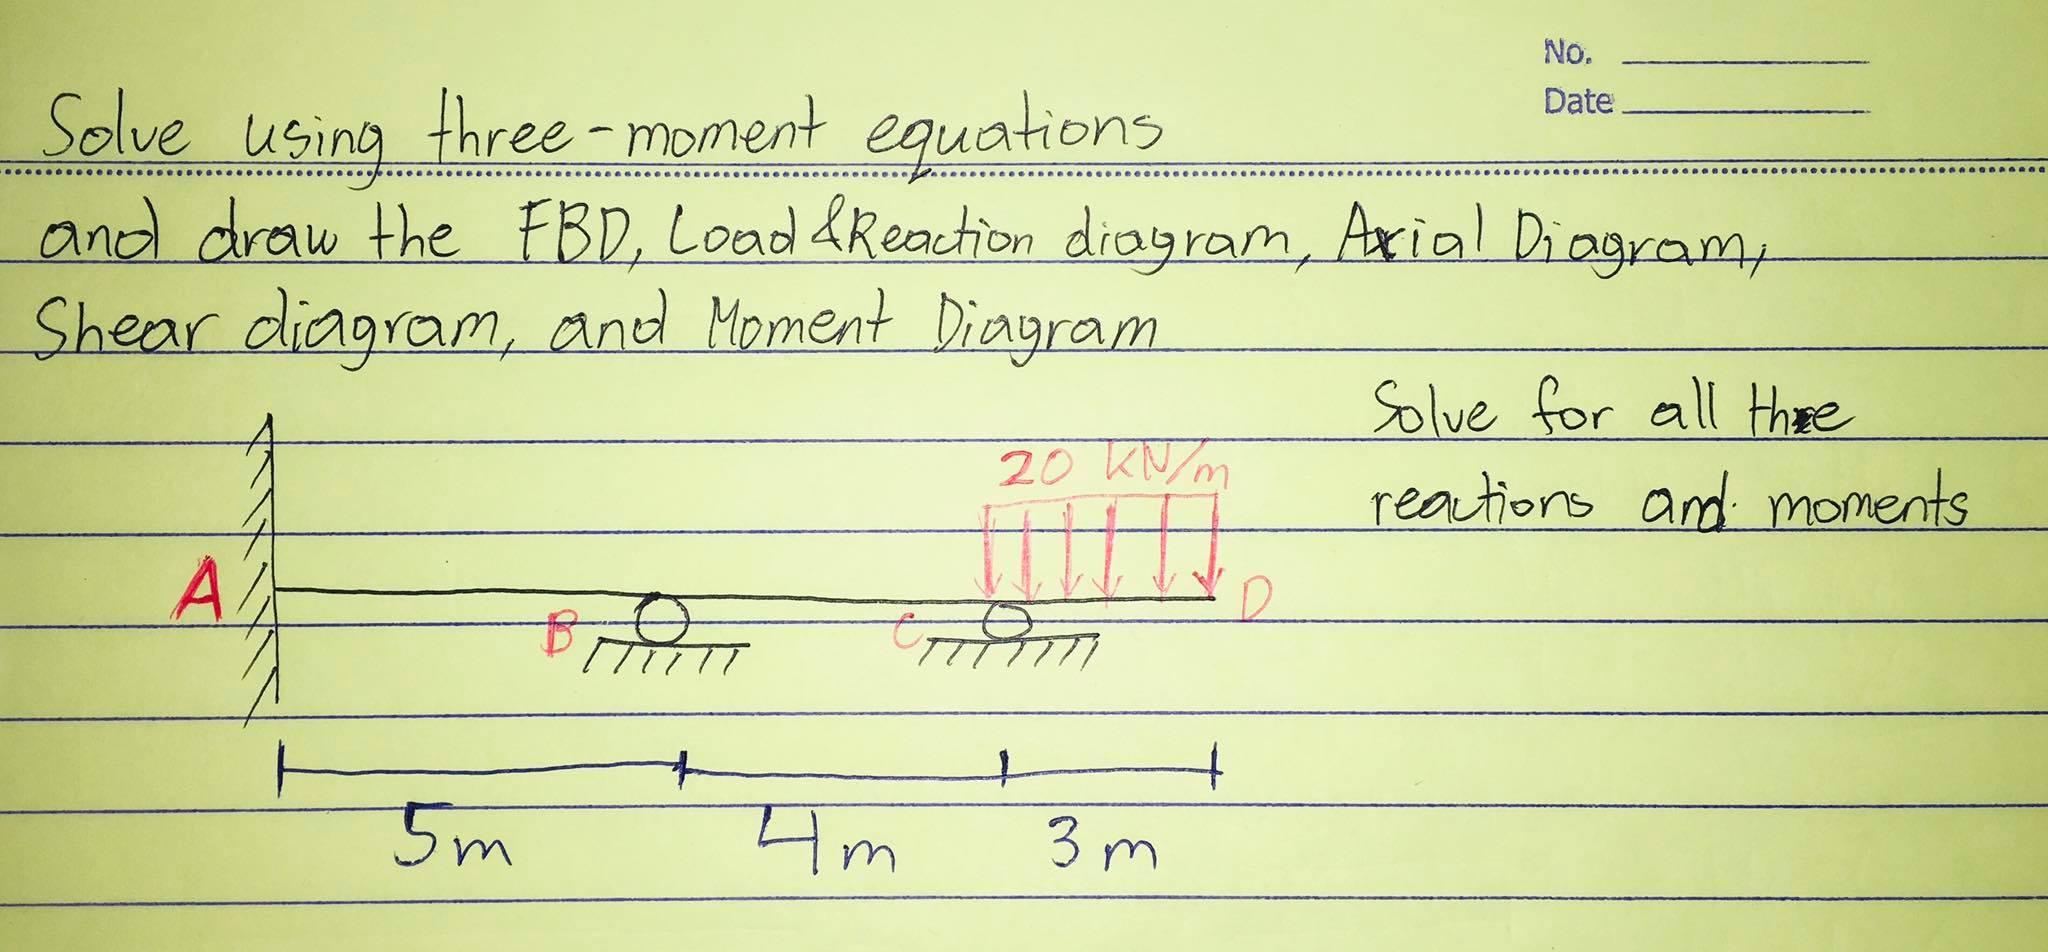 No.
Date
Solve using three-moment equations
and draw the FBD, Load & Reaction diagram, Axial Diagram,
Shear diagram, and Moment Diagram
Solve for all the
reactions and moments
20 kN/m
A
B
C
D
5m
4m
3m